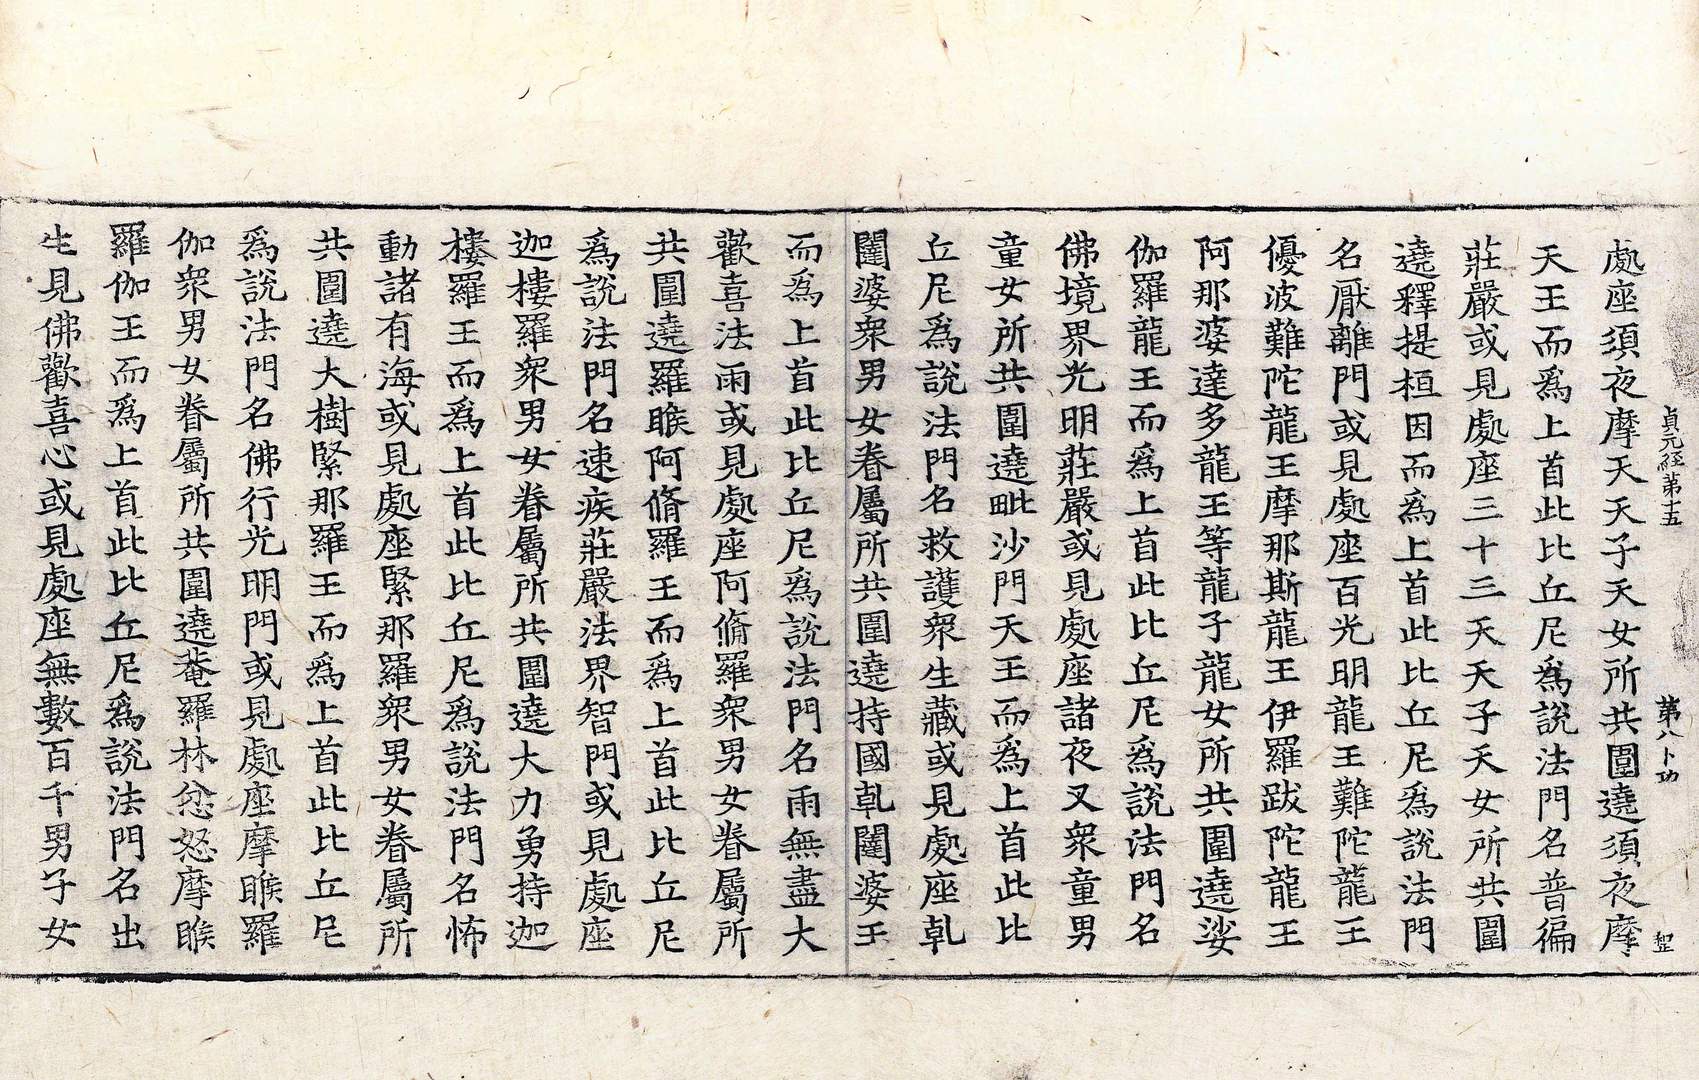 貞元經第十五 第八卜功 聖
處座須夜摩天天子天女所共圍遶須夜摩
天王而爲上首此比丘尼爲說法門名普徧
莊嚴或見處座三十三天天子天女所共圍
遶釋提桓因而爲上首此比丘尼爲說法門
名厭離門或見處座百光明龍王難陀龍王
優波難陀龍王摩那斯龍王伊羅跋陀龍王
阿那婆達多龍王等龍子龍女所共圍遶娑
伽羅龍王而爲上首此比丘尼爲說法門名
佛境界光明莊嚴或見處座諸夜叉衆童男
童女所共圍遶毗沙門天王而爲上首此比
丘尼爲說法門名救護衆生藏或見處座乹
闥婆衆男女眷屬所共圍遶持國乹闥婆王
而爲上首此比丘尼爲說法門名雨無盡大
歡喜法雨或見處座阿脩羅衆男女眷屬所
共圍遶羅睺阿脩羅王而爲上首此比丘尼
爲說法門名速疾莊嚴法界智門或見處座
迦樓羅衆男女眷屬所共圍遶大力勇持迦
樓羅王而爲上首此比丘尼爲說法門名怖
動諸有海或見處座緊那羅衆男女眷屬所
共圍遶大樹緊那羅王而爲上首此比丘尼
爲說法門名佛行光明門或見處座摩睺羅
伽衆男女眷屬所共圍遶菴羅林忿怒摩睺
羅伽王而爲上首此比丘尼爲說法門名出
生見佛歡喜心或見處座無數百千男子女